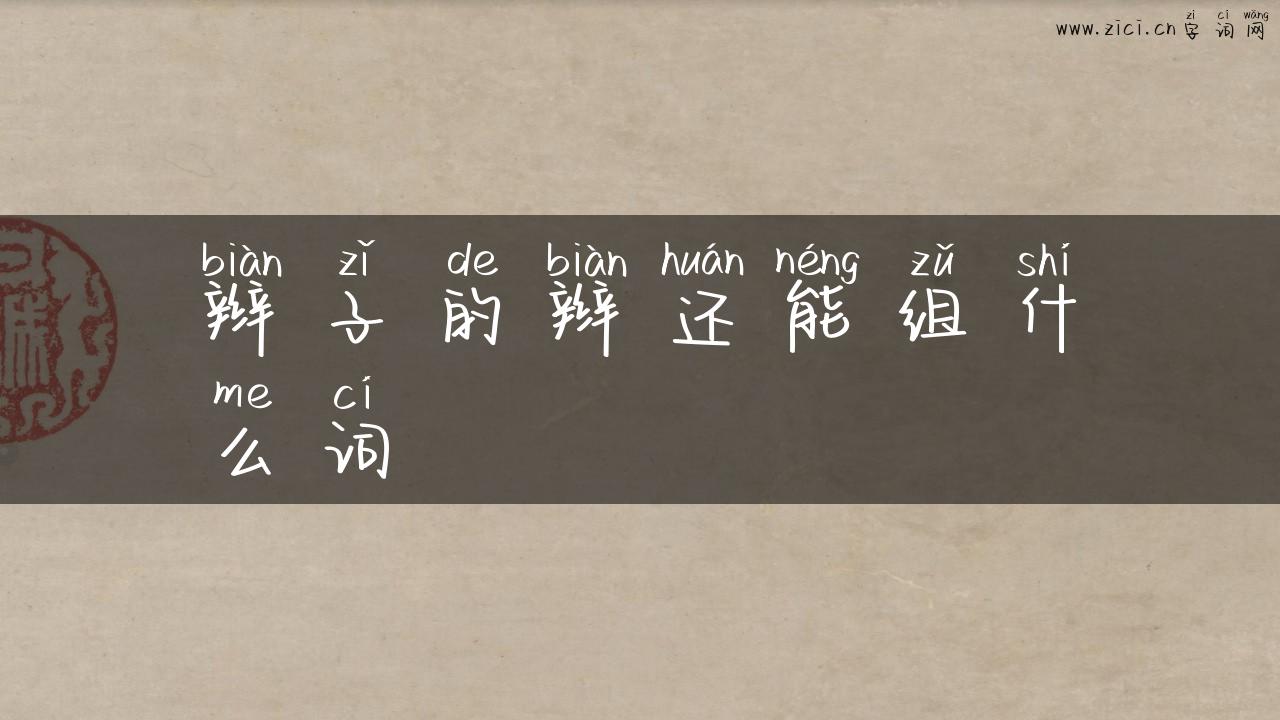 zì cí wǎng
www.zici.cn 字词网
biàn zǐ de biàn huán néng zǔ shí
辫子的辫还能组什
me cí
么词